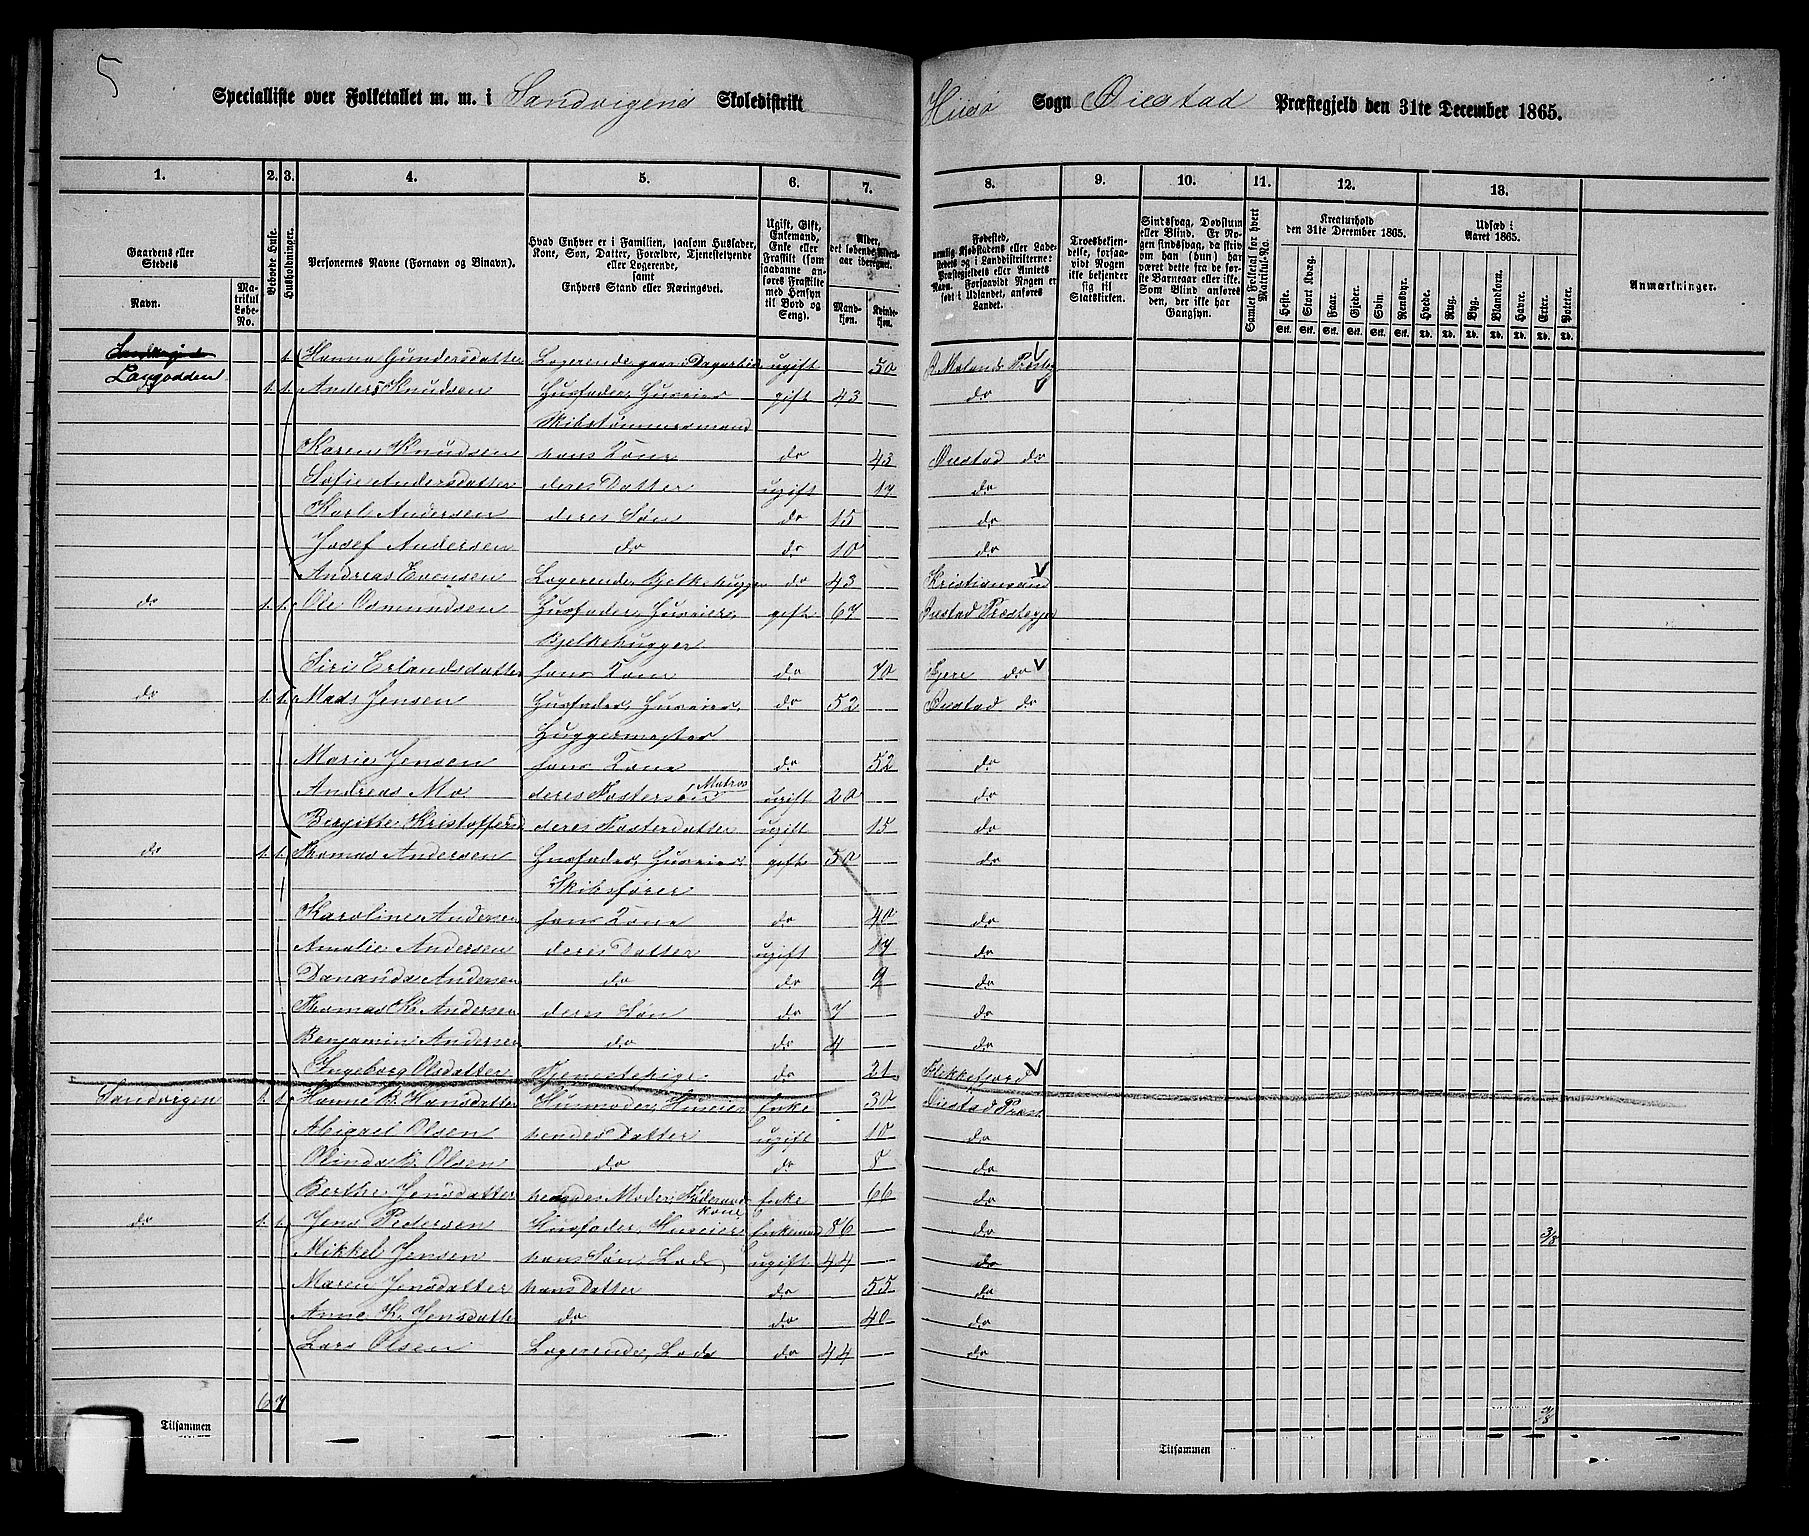 5
Specialliste over Folketallet m. m. i Sandvigens Skoledistrikt
Hisö Sogn Öiestad Præstegjeld den 31te December 1865.
1. 2. 3. 4. 5. 6. 7. 8. 9. 10. 11. 12. 13.
Gaardens eller Stedets
Navn.
Matrikul Løbe-No.
Beboede Huse.
Husholdninger.
Personernes Navne (Fornavn og Binavn).
Hvad Enhver er i Familien, saasom Husfader, Kone, Søn, Datter, Forældre, Tjenestetyende eller Logerende, samt Enhvers Stand eller Næringsvei.
Ugift, Gift, Enkemand, Enke eller Fraskilt (som saadanne anføres Fraskilte med Hensyn til Bord og Seng).
Alder, det løbende Aldersaar iberegnet.
Mandkjøn.
Kvindekjøn.
Fødested, nemlig Kjøbstadens eller Ladestedets og i Landdistrikterne: Præstegjeldets eller Amtets Navn. Forsaavidt Nogen er født i Udlandet, anføres Landet.
Troesbekjendelse, forsaavidt Nogen ikke bekjender sig til Statskirken.
Sindssvag, Døvstum eller Blind. Er Nogen sindssvag, da skriv om han (hun) har været dette fra de første Barneaar eller ikke. Som Blind anføres den, der ikke har Gangsyn.
Samlet Folketal for hvert Matrikul-No.
Kreaturhold den 31te December 1865.
Heste. Stort Kvæg. Faar. Gjeder. Svin. Rensdyr.
Udsæd i Aaret 1865.
Hvede. Rug. Byg. Blandkorn. Havre. Erter. Poteter.
Anmærkninger.
1. Hanna Gundersdatter Logerende, gaar i Dagarbeide ugift 50 Ö. Molands Præsteg
Langodden 1. 1. Anders Knudsen Husfader, Huseier gift 43 do
Skibstömmermand
Karen Knudsen hans Kone do 43 Öiestad do
Sofie Andersdatter deres Datter ugift 17 do
Karl Andersen deres Sön do 15 do
Josef Andersen do do 10 do
Andreas Evensen Logerende, Bjelkehugger do 43 Kristiansand
do 1. 1. Ole Osmundsen Husfader, Huseier, gift 67 Öiestad Præstegjeld
Bjelkehugger
Siri Erlandsdatter hans Kone do 70 Gjere do
do 1. 1. Mads Jensen Husfader, Huseier, do 52 Öiestad do
Huggermester
Marie Jensen hans Kone do 52 do
Andreas Mo. deres Fostersön Matros ugift 20 do
Birgitte Kristoffersd deres Fosterdatter ugift 15 do
do 1. 1. Thomas Andersen Husfader, Huseier, gift 50 do
Skibsförer
Karoline Andersen hans Kone do 40 do
Amalie Andersen deres Datter ugift 17 do
Andersen do do 9 do
Thomas K. Andersen deres Sön do 7 do
Benjamin Andersen do do 4 do
Ingeborg Olsdatter Tjenestepige do 21 Flekkefjord
Sandvigen 1. 1. Hanne B. Hansdatter Husmoder, Huseier Enke 30 Öiestad Præst
Abigael Olsen hendes Datter ugift 10 do
Olinda B. Olsen do do 8 do
Berthe Jensdatter hendes Moder, Föderaadskone Enke 66 do
do 1. 1. Jens Pedersen Husfader, Huseier Enkemand 86 do 3/8
Mikkel Jensen hans Sön, Lods ugift 44 do
Maren Jensdatter hans Datter do 55 do
Anne K. Jensdatter do do 40 do
Lars Olsen Logerende, Lods do 44 do
6 7
Tilsammen
Tilsammen 3/8